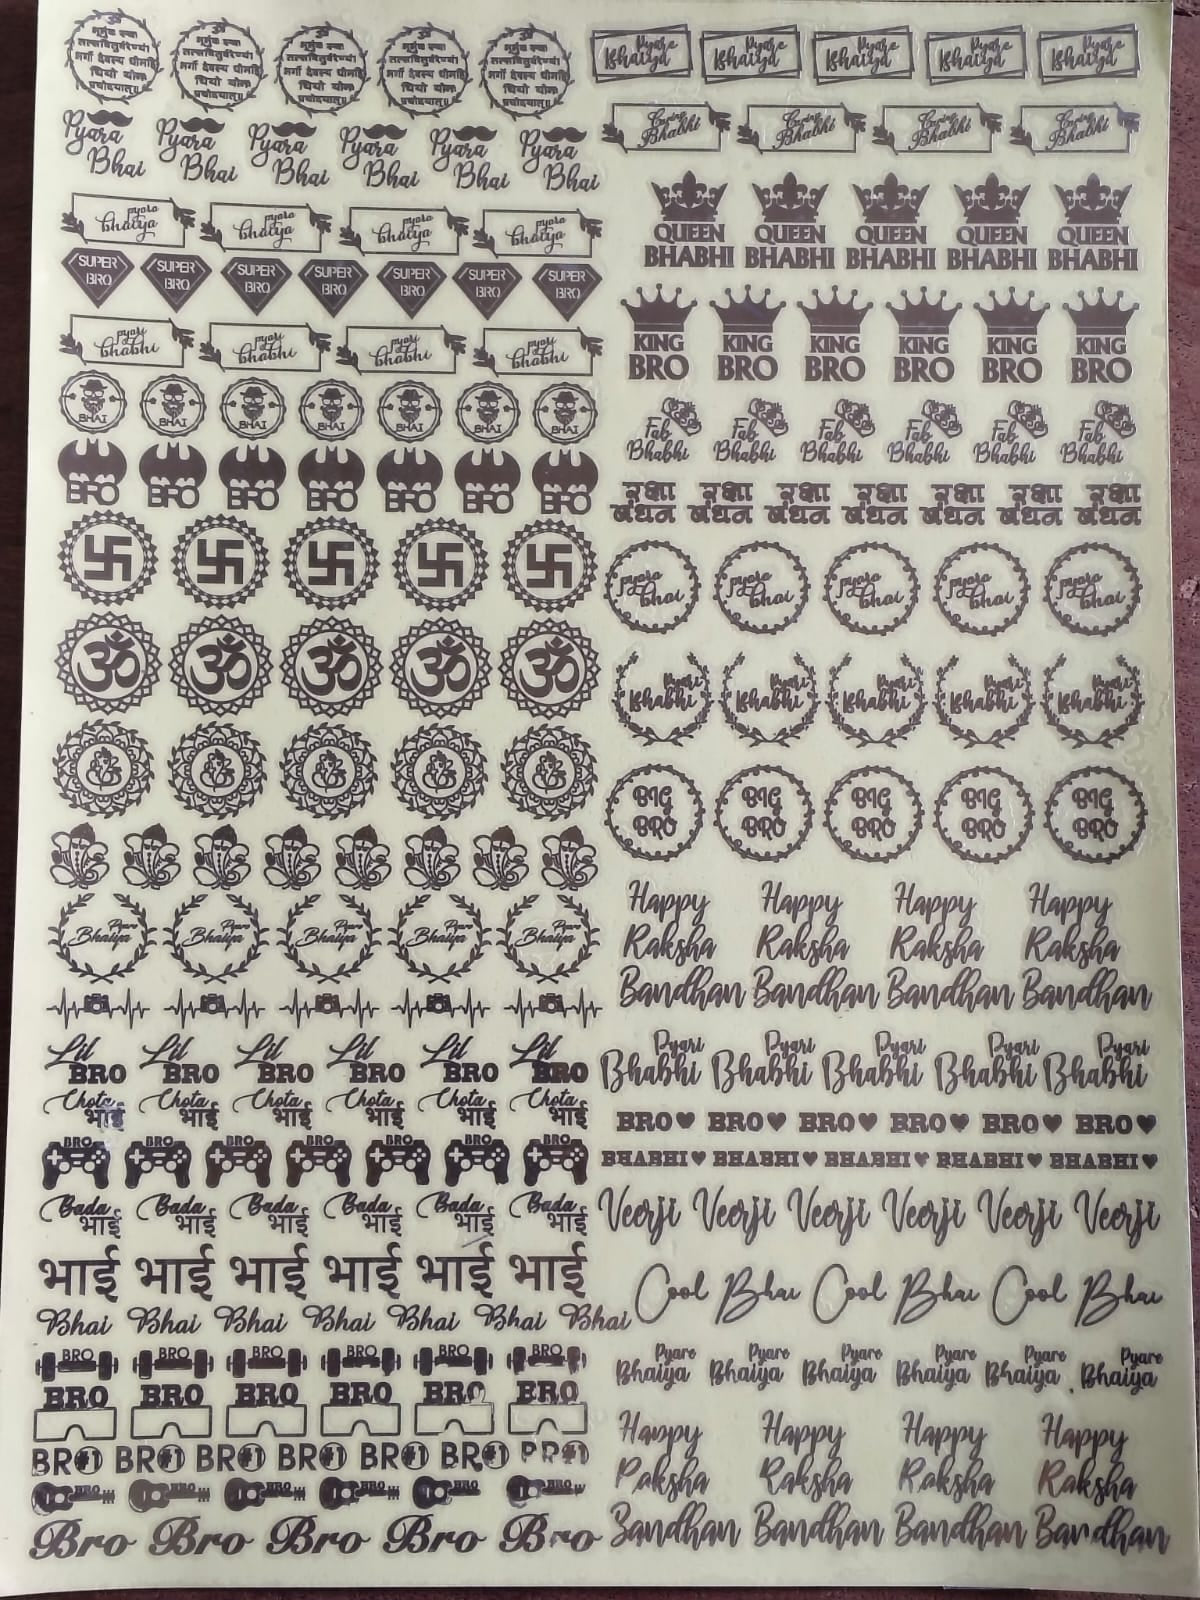 ॐ ॐ ॐ ॐ ॐ
भूर्भुवः स्वः भूर्भुवः स्वः भूर्भुवः स्वः भूर्भुवः स्वः भूर्भुवः स्वः
तत्सवितुर्वरेण्यं तत्सवितुर्वरेण्यं तत्सवितुर्वरेण्यं तत्सवितुर्वरेण्यं तत्सवितुर्वरेण्यं
भर्गो देवस्य धीमहि भर्गो देवस्य धीमहि भर्गो देवस्य धीमहि भर्गो देवस्य धीमहि भर्गो देवस्य धीमहि
धियो यो नः धियो यो नः धियो यो नः धियो यो नः धियो यो नः
प्रचोदयात्॥ प्रचोदयात्॥ प्रचोदयात्॥ प्रचोदयात्॥ प्रचोदयात्॥
Pyara Pyara Pyara Pyara Pyara Pyara
Bhai Bhai Bhai Bhai Bhai Bhai
pyara pyara pyara pyara
bhaiya bhaiya bhaiya bhaiya
SUPER SUPER SUPER SUPER SUPER SUPER SUPER
BRO BRO BRO BRO BRO BRO BRO
pyari pyari pyari pyari
bhabhi bhabhi bhabhi bhabhi
BHAI BHAI BHAI BHAI BHAI BHAI BHAI
BRO BRO BRO BRO BRO BRO BRO
ॐ ॐ ॐ ॐ ॐ
Pyare Pyare Pyare Pyare Pyare
Bhaiya Bhaiya Bhaiya Bhaiya Bhaiya
Lil Lil Lil Lil Lil Lil
BRO BRO BRO BRO BRO BRO
Chota Chota Chota Chota Chota Chota
भाई भाई भाई भाई भाई भाई
BRO BRO BRO BRO BRO BRO BRO
Bada Bada Bada Bada Bada Bada
भाई भाई भाई भाई भाई भाई
भाई भाई भाई भाई भाई भाई
Bhai Bhai Bhai Bhai Bhai Bhai Bhai
BRO BRO BRO BRO BRO BRO
BRO BRO BRO BRO BRO BRO
BRO#1 BRO#1 BRO#1 BRO#1 BRO#1 BRO#1 BRO#1
BRO BRO BRO BRO BRO BRO
Bro Bro Bro Bro Bro
Pyare Pyare Pyare Pyare Pyare
Bhaiya Bhaiya Bhaiya Bhaiya Bhaiya
Caring Caring Caring Caring
Bhabhi Bhabhi Bhabhi Bhabhi
QUEEN QUEEN QUEEN QUEEN QUEEN
BHABHI BHABHI BHABHI BHABHI BHABHI
KING KING KING KING KING KING
BRO BRO BRO BRO BRO BRO
Fab Fab Fab Fab Fab Fab
Bhabhi Bhabhi Bhabhi Bhabhi Bhabhi Bhabhi
रक्षा रक्षा रक्षा रक्षा रक्षा रक्षा रक्षा
बंधन बंधन बंधन बंधन बंधन बंधन बंधन
pyara pyara pyara pyara pyara
bhai bhai bhai bhai bhai
Pyari Pyari Pyari Pyari Pyari
Bhabhi Bhabhi Bhabhi Bhabhi Bhabhi
BIG BIG BIG BIG BIG
BRO BRO BRO BRO BRO
Happy Happy Happy Happy
Raksha Raksha Raksha Raksha
Bandhan Bandhan Bandhan Bandhan
Pyari Pyari Pyari Pyari Pyari
Bhabhi Bhabhi Bhabhi Bhabhi Bhabhi
BRO♥ BRO♥ BRO♥ BRO♥ BRO♥ BRO♥
BHABHI♥ BHABHI♥ BHABHI♥ BHABHI♥ BHABHI♥
Veerji Veerji Veerji Veerji Veerji Veerji
Cool Bhai Cool Bhai Cool Bhai
Pyare Pyare Pyare Pyare Pyare Pyare
Bhaiya Bhaiya Bhaiya Bhaiya Bhaiya Bhaiya
Happy Happy Happy Happy
Raksha Raksha Raksha Raksha
Bandhan Bandhan Bandhan Bandhan